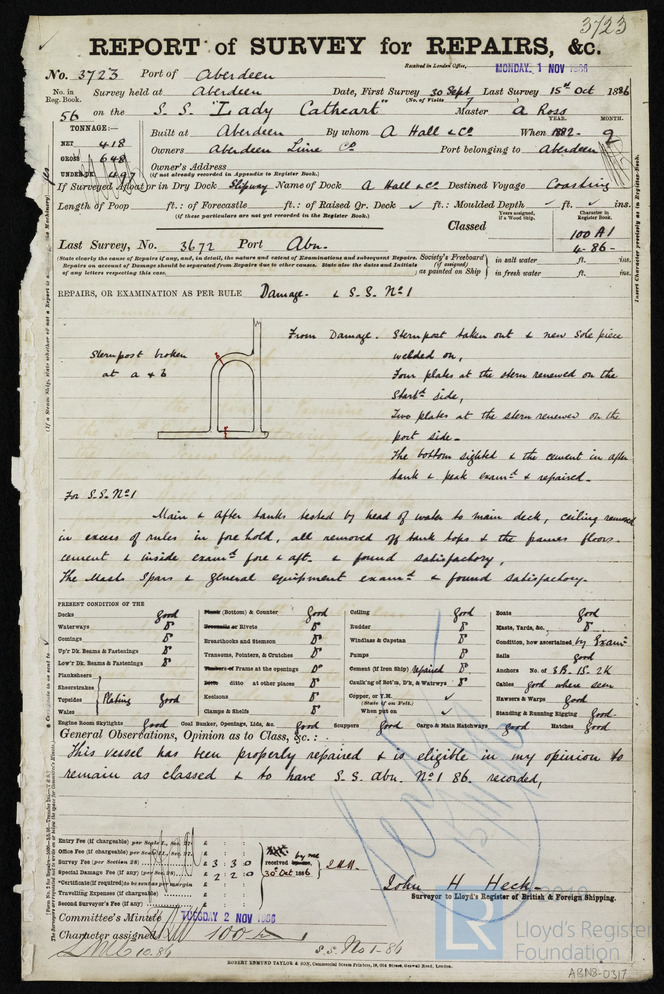 3723
REPORT of SURVEY for REPAIRS, &c.
Received in London Office, MONDAY. 1 NOV 1886
No. 3723 Port of Aberdeen
No. in Reg. Book. Survey held at Aberdeen Date, First Survey 30 Sept Last Survey 15th Oct 1886
(No. of Visits 7)
56 on the S.S. "Lady Cathcart" Master A Ross
TONNAGE:—
NET 418
GROSS 648
UNDER DK 497
YEAR. MONTH.
Built at Aberdeen By whom A Hall & Co When 1882. 9
Owners Aberdeen Lime Co Port belonging to Aberdeen
Owner's Address
(if not already recorded in Appendix to Register Book.)
If Surveyed Afloat or in Dry Dock Slipway Name of Dock A Hall & Co. Destined Voyage Coasting
Length of Poop ft.: of Forecastle ft.: of Raised Qr. Deck ✓ ft.: Moulded Depth ✓ ft. ✓ ins.
(if these particulars are not yet recorded in the Register Book.)
Classed
Years assigned, if a Wood Ship.
Character in Register Book.
100 A1
4-86-
Last Survey, No. 3672 Port Abn.
(State clearly the cause of Repairs if any, and, in detail, the nature and extent of Examinations and subsequent Repairs.
Repairs on account of Damage should be separated from Repairs due to other causes. State also the dates and Initials
of any letters respecting this case.)
Society's Freeboard (if assigned) as painted on Ship
in salt water ft. ins.
in fresh water ft. ins.
Insert Character precisely as in Register Book.
REPAIRS, OR EXAMINATION AS PER RULE Damage. & S.S. No 1
Sternpost broken
at a & b
From Damage. Sternpost taken out & new sole piece
welded on,
Four plates at the stern renewed on the
Starbd side,
Two plates at the stern renewed on the
port side.
The bottom sighted & the cement in after
tank & peak examd & repaired.
For S.S. No 1
Main & After tanks tested by head of water to main deck, ceiling removed
in excess of rules in fore hold, all removed off tank tops & the frames floors.
cement & inside examd fore & aft. & found satisfactory,
The Masts Spars & general equipment examd & found satisfactory.
PRESENT CONDITION OF THE
Decks good
Waterways Do
Comings Do
Up'r Dk. Beams & Fastenings Do
Low'r Dk. Beams & Fastenings Do
Plankshears
Sheerstrakes
Topsides
Wales
Plating Good
Plank (Bottom) & Counter good
Treenails or Rivets Do
Breasthooks and Stemson Do
Transoms, Pointers, & Crutches Do
Timbers of Frame at the openings Do
Ditto ditto at other places Do
Keelsons Do
Clamps & Shelfs Do
Ceiling Good
Rudder Do
Windlass & Capstan Do
Pumps Do
Cement (if Iron Ship) repaired Do
Caulk'ng of Bot'm, D'k, & Watrwys Do
Copper, or Y.M. ✓
(State if on Felt.)
When put on ✓
Boats Good
Masts, Yards, &c. Do
Condition, how ascertained by Examn
Sails good
Anchors No. of 3B. 1S. 2K
Cables good where seen
Hawsers & Warps Good
Standing & Running Rigging Good
Engine Room Skylights Good Coal Bunker, Openings, Lids, &c. good Scuppers Good Cargo & Main Hatchways good Hatches Good
General Observations, Opinion as to Class, &c.:
This vessel has been properly repaired & is eligible in my opinion to
remain as classed & to have S.S. Abn. No 1 86. recorded,
Entry Fee (if chargeable) per Scale I., Sec. 27 £ : :
Office Fee (if chargeable) per
Survey Fee (per Section 28) £ 3 : 3 : 0
Special Damage Fee (if any) (per Sec. 28) £ 2 : 2 : 0
*Certificate (if required) to be sent as per margin
Travelling Expenses (if chargeable)
Second Surveyor's Fee (if any) £ : :
received by me
30 Oct 1886
J.H.H.
John H Heck
Surveyor to Lloyd's Register of British & Foreign Shipping.
Committee's Minute TUESDAY 2 NOV 1886
Character assigned 100 A 1
LMC 10.86
S.S. No 1-86
ROBERT EDMUND TAYLOR & SON, Commercial Steam Printers, 19, Old Street, Goswell Road, London.
LR
Lloyd's Register
Foundation
ABN3-0317